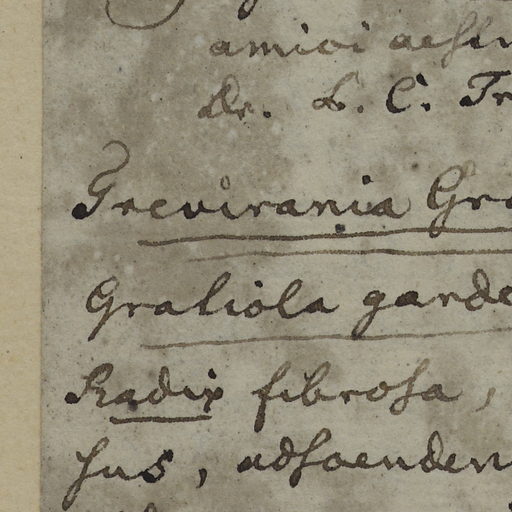 amici aest
Dr. L. C. Tr
Trevirania Gra
Gratiola garde
Radix fibrosa,
sus, adscenden